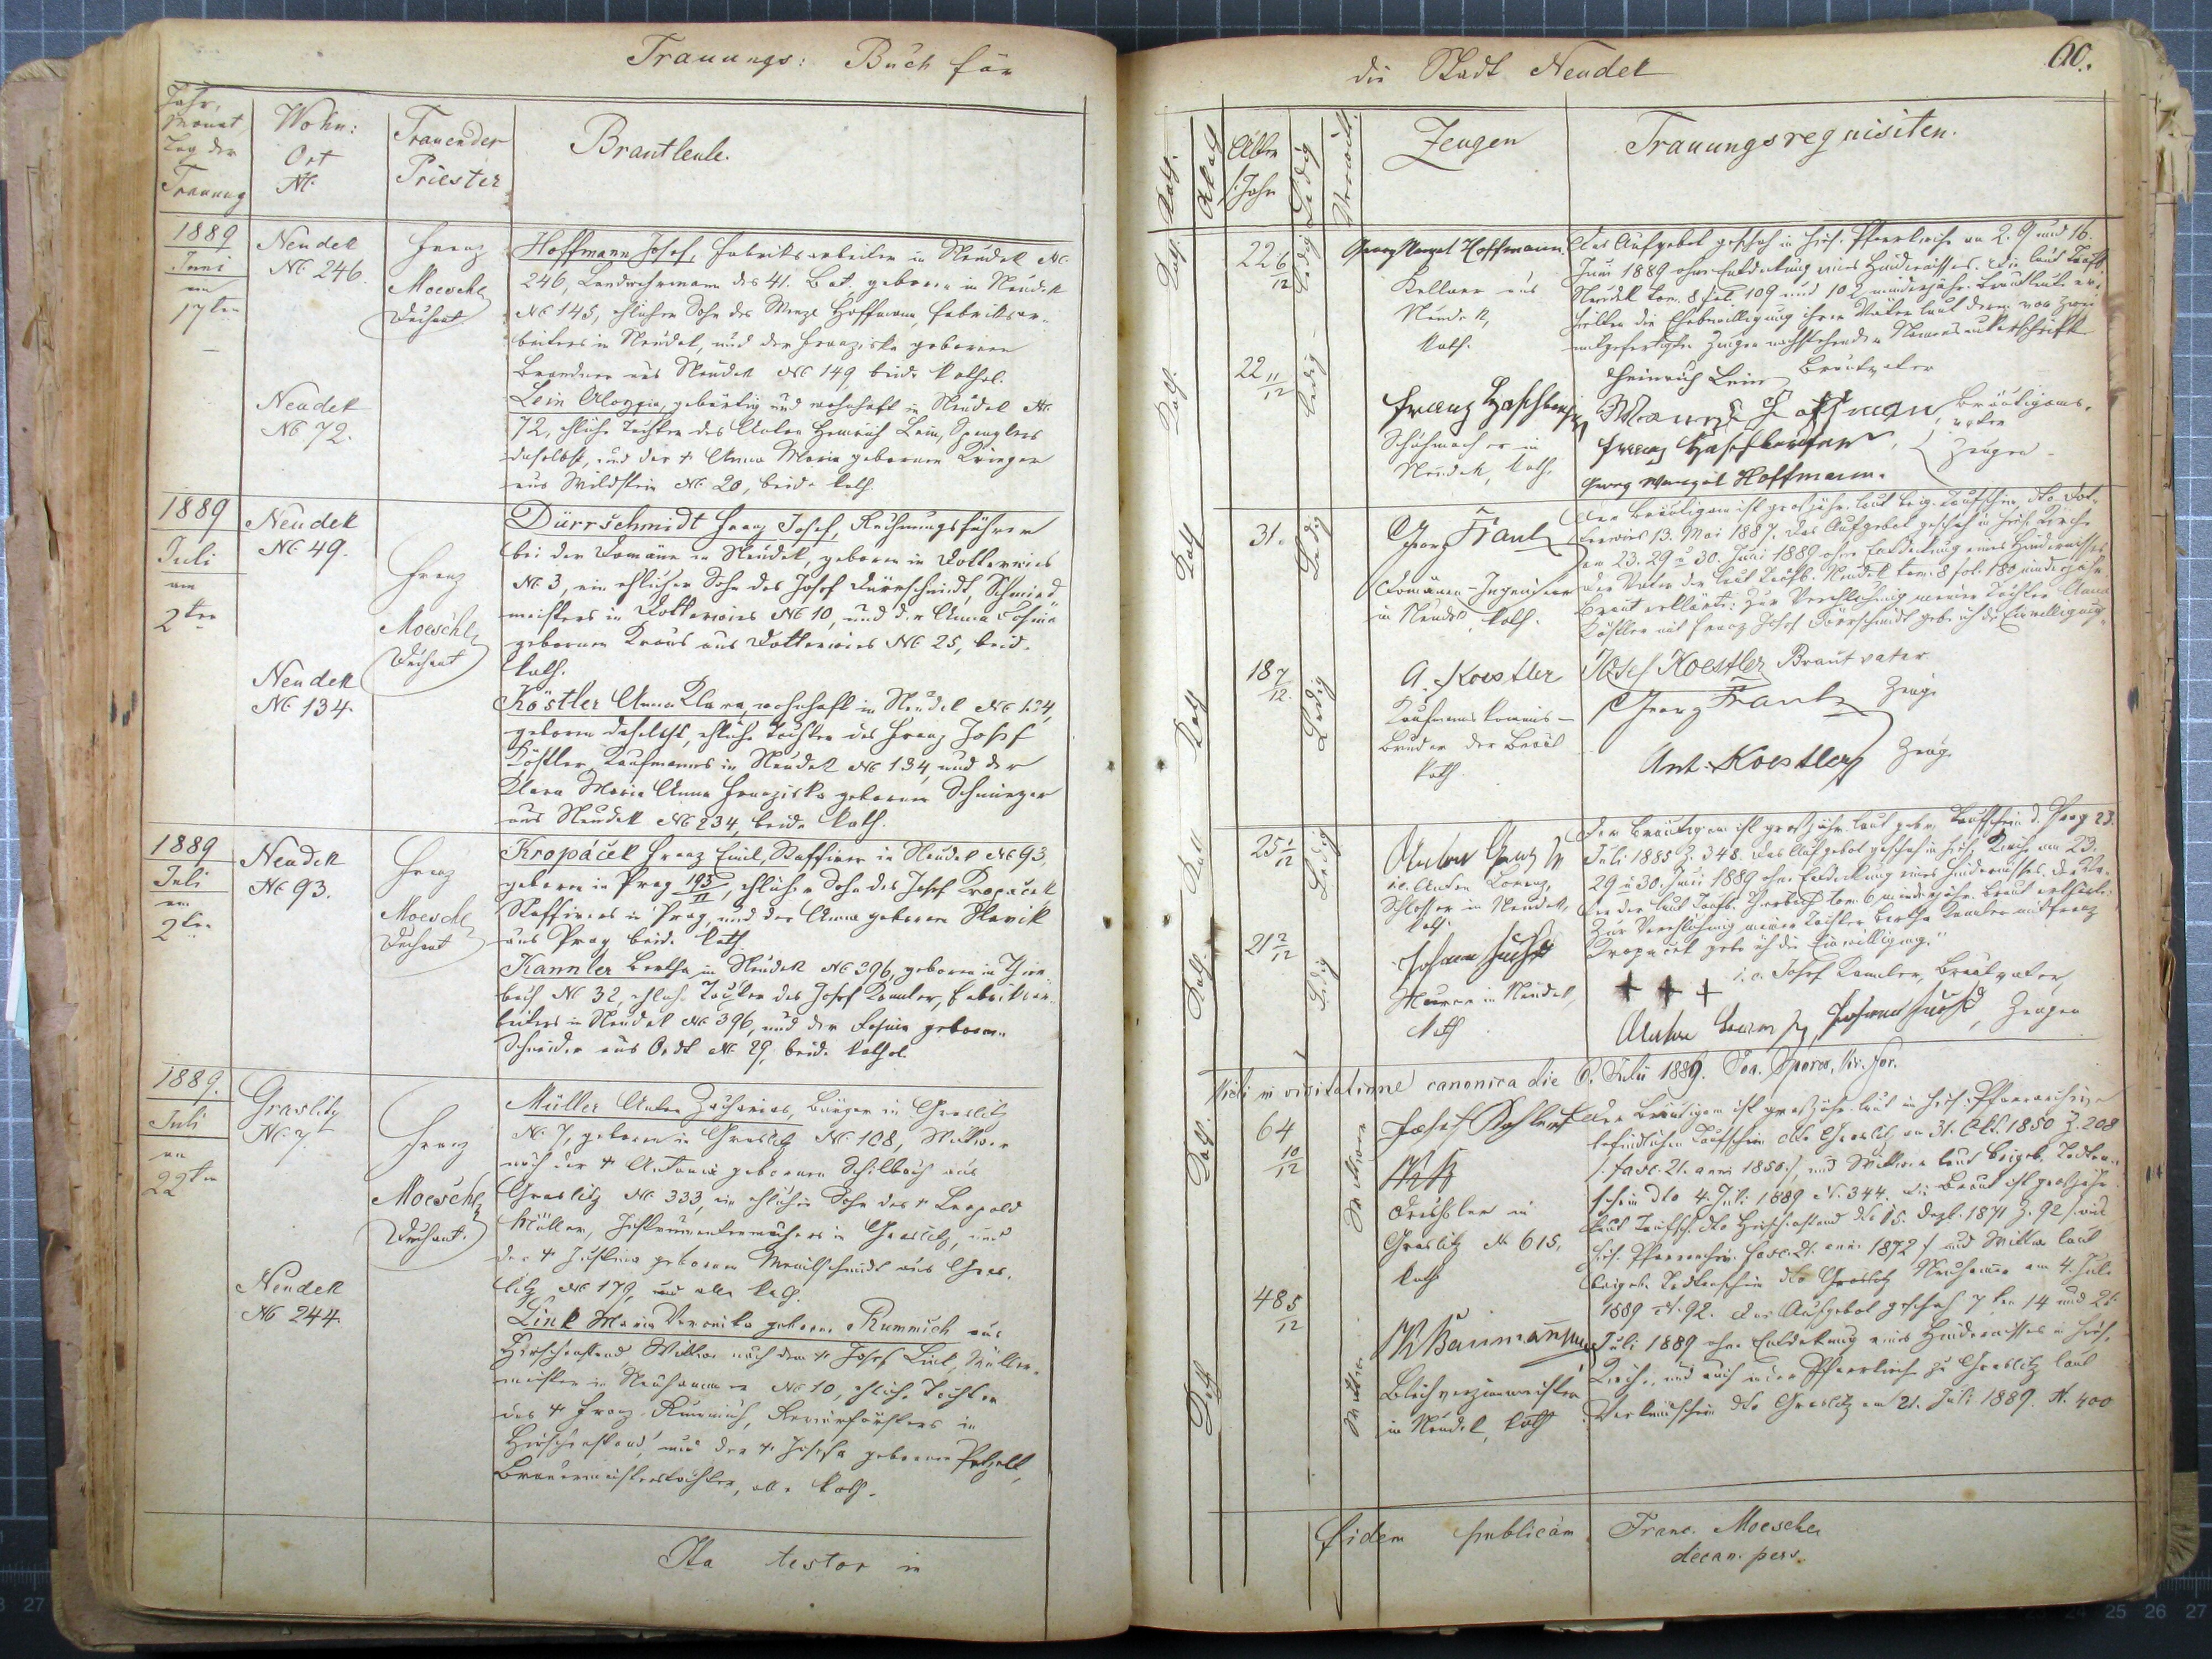 Trauungs: Buch für
Jahr,
Monat,
Tag der
Trauung
Wohn:
Ort
N.
Trauender
Priester
Brautleute.
1889
Juni
am
17ten
Neudek
No 246.
Franz
Moeschl
Dechant
Hoffmann Josef, Fabriksarbeiter in Neudek No.
246, Landwehrmann des 41. Bat. geboren in Neudek
No 145, ehlicher Sohn des Wenzl Hoffmann, Fabriksar-
beiters in Neudek, und der Franziska geborenen
Brandner aus Neudek No 149 beide kathol.
Neudek
No 72.
Lein Aloysia, gebürtig und wohnhaft in Neudek No.
72, ehliche Tochter des Vaters Heinrich Lein, Spenglers
daselbst, und der + Anna Maria geborenen Krieger
aus Wildstein No. 20, beide kath.
1889
Juli
am
2ten
Neudek
No 49.
Franz
Moeschl
Dechant
Dürrschmidt Franz Josef, Rechnungsführer
bei der Domäne in Neudek, geboren in Dotterwies
No 3, ein ehlicher Sohn des Josef Dürrschmidt, Schmied-
meisters in Dotterwies No 10, und der Anna Rosina
geborenen Kraus aus Dotterwies No 25, beide
kath.
Neudek
No 134.
Köstler Anna Klara, wohnhaft in Neudek No 134,
geboren daselbst, ehliche Tochter des Franz Josef
Köstler, Kaufmanns in Neudek No 134, und der
Klara Maria Anna Franziska geborenen
aus Neudek No 234, beide kath.
1889
Juli
am
2ten
Neudek
No 93.
Franz
Moeschl
Dechant
Kropáček Franz Emil, Staffirer in Neudek No 93,
geboren in Prag 193/II, ehlicher Sohn des Josef Kropáček
Staffirers in Prag, und der Anna geborenen Slavik
aus Prag, beide kath.
Kannler Bertha in Neudek No 396, geboren in Thier-
bach No 32, ehliche Tochter des Josef Kannler, Fabriksar-
beiters in Neudek No 396, und der Rosina geborenen
Schneider aus Oedt No. 29, beide kathol.
1889.
Juli
am
22ten
Graslitz
No. 7.
Franz
Moeschl
Dechant.
Müller Anton Zacharias, Bürger in Graslitz
No. 7, geboren in Graslitz No. 108, Witwer
nach der + Antonia geborenen Schilbach aus
Graslitz No. 333, ein ehlicher Sohn des + Leopold
Müller, Instrumentenmachers in Graslitz, und
der + Justina geborenen aus Gras-
litz No 179, alle kath.
Neudek
No 244.
Link Maria Veronika geborene Rummich aus
Hirschenstand, Witwe nach dem + Josef Link, Müller-
meister in Neuhammer No 10, ehliche Tochter
des + Franz Rummich, Revierförsters in
Hirschenstand, und der + Josefa geborenen
Brauermeisterstochter, alle kath.
Ita testor in
die Stadt Neudek
60.
Kath.
Akath.
Alter
Jahr
Ledig
Verwit.
Zeugen
Trauungsrequisiten.
Kath.
22 6/12
ledig
Georg Wenzel Hoffmann.
Kellner aus
Neudek,
kath.
Das Aufgebot geschah in hies. Pfarrkirche am 2. 9. und 16.
Juni 1889 ohne Entdeckung eines Hindernisses. Die laut Taufb.
Neudek tom. 8 fol. 109 und 102 minderjähr. Brautleute er-
hielten die Ehebewilligung ihrer Väter laut deren von zwei
mitgefertigten Zeugen nachstehenden Namensunterschrift
Kath.
22 11/12
ledig
Franz Haschberger
Schuhmacher in
Neudek, kath.
Heinrich Lein Brautvater
Wenzl Hoffmann, Bräutigams-
vater
Franz Haschberger,
Georg Wenzel Hoffmann.
Zeugen
Kath
31.
Ledig
Georg Frank
Domänen-Ingenieur
in Neudek, kath.
Der Bräutigam ist großjähr. laut beig. Taufschein dto. Dot-
terwies 13. Mai 1887. Das Aufgebot geschah in hies. Kirche
am 23. 29. u 30. Juni 1889 ohne Entdeckung eines Hindernisses.
Der Vater der laut Taufb. Neudek tom. 8 fol. 180 minderjähr.
Braut erklärte: Zur Verehlichung meiner Tochter Anna
Köstler mit Franz Josef Dürrschmidt gebe ich die Einwilligung"
Kath
18 7/12.
Ledig
A. Koestler
Bruder der Braut
kath.
Josef Koestler Brautvater
Georg Frank Zeuge
Ant. Koestler Zeuge
Kath
25 1/12
Ledig
i.e. Anton Lorenz,
Schlosser in Neudek,
kath.
Der Bräutigam ist großjähr. laut Taufschein d. Prag 23.
Juli 1885 Z. 348. Das Aufgebot geschah in hies. Kirche am 23.
29. u 30. Juni 1889 ohne Entdeckung eines Hindernisses. Der Va-
ter der laut Taufb. Thierbach tom. 6 minderjähr. Braut erklärte:
Zur Verehlichung meiner Tochter Bertha Kannler mit Franz
Kropáček gebe ich die Einwilligung."
Kath.
21 2/12
Ledig
Johann
Maurer in Neudek,
kath
+ + + i.e. Josef Kannler, Brautvater,
Zeugen
Vidi in visitatione canonica die 6. Julii 1889.
Kath.
64 10/12
Witwer
Josef
in
Graslitz No 615,
kath
Der Bräutigam ist großjähr. laut in hies. Pfarrarchive
befindlichen Taufschein dto Graslitz am 31. Okt. 1850 Z. 208
/: fasc. 21. anni 1850 :/, und Witwer laut beigeb. Todten-
schein dto 4. Juli 1889 N. 344. Die Braut ist großjähr.
laut Taufsch. dto Hirschenstand dto 15. Dezb. 1871 Z. 92
hies. Pfarrarchiv fasc. 21. anni 1872 / und Witwe laut
beigeb. Todtenschein dto Graslitz Neuhammer am 4. Juli
1889 N. 92. Das Aufgebot geschah 7ten 14 und 21.
Juli 1889 ohne Entdeckung eines Hindernisses in hies.
Kirche, und auch in der Pfarrkirche zu Graslitz laut
Verkündschein dto Graslitz am 21. Juli 1889. N. 400
Kath
48 5/12
Witwe
Baumann
in Neudek, kath
fidem publicam Franc. Moeschl
decan. pers.